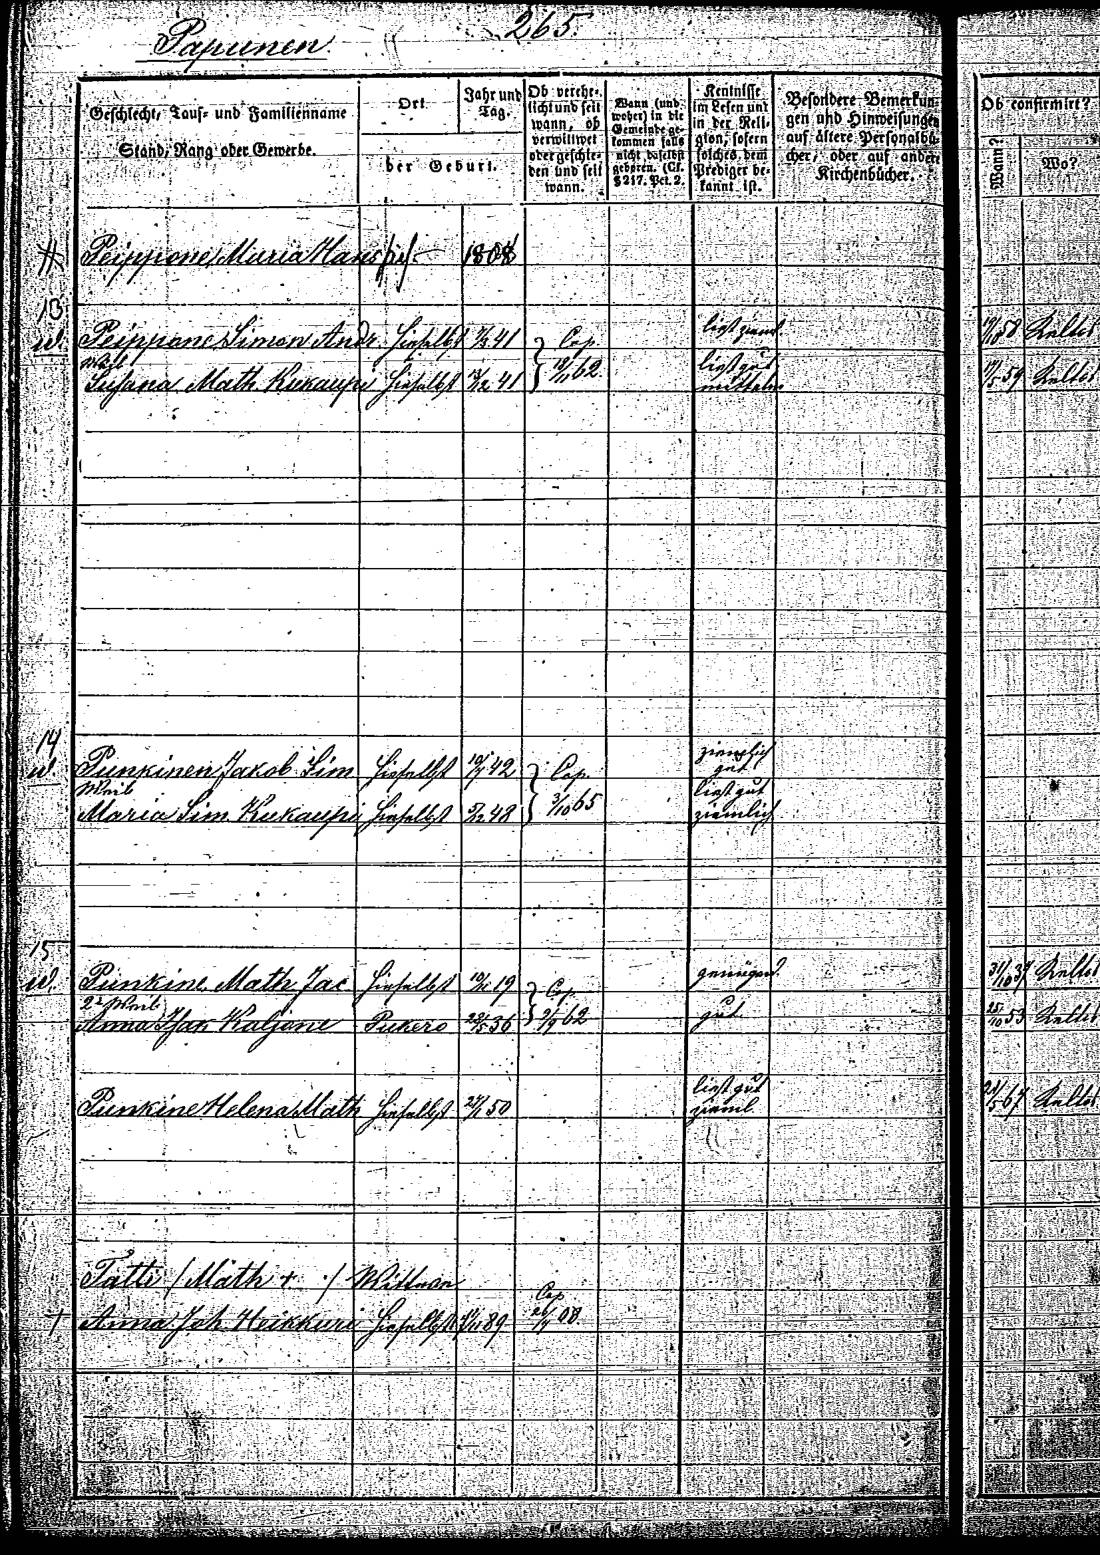 265.
Papunen
Geschlecht, Tauf- und Familienname
Stand, Rang oder Gewerbe.
Ort
der Geburt.
Jahr und
Tag.
Ob verehe-
licht und seit
wann, ob
verwittwet
oder geschie-
den und seit
wann.
Wann (und
woher) in die
Gemeinde ge-
kommen falls
nicht daselbst
geboren. (Cf.
§ 217. Pct. 2.
Kentnisse
im Lesen und
in der Reli-
gion, sofern
solches dem
Prediger be-
kannt ist.
Besondere Bemerkun-
gen und Hinweisungen
auf ältere Personalbü-
cher, oder auf andere
Kirchenbücher.
Ob confirmirt?
Wann?
Wo?
Peippone, Maria Hans 1808
13
Peippone Simon Andr. hieselbst 41 Cop. liest zieml. 58 Keltto
Weib
Susana Math. Kukaupi hieselbst 41 62 liest gut 59 Keltto
mittelm
14
Punkinen Jakob Sim hieselbst 42 Cop. ziemlich
gut
Weib
Maria Sim. Kukaupi hieselbst 48 3/10 65 liest gut
ziemlich
15
Punkine Math Jac hieselbst 19 Cop. genügend. 37 Keltto
2s Weib
Anna Isak Kaljone Pukero 36 62 gut 25/10 53 Keltto
Punkine Helena Math hieselbst 50 liest gut
zieml. 67 Keltto
Tatti / Math + / Wittwe
Cop
+ Anna Joh. Heikkuri hieselbst 89 08.